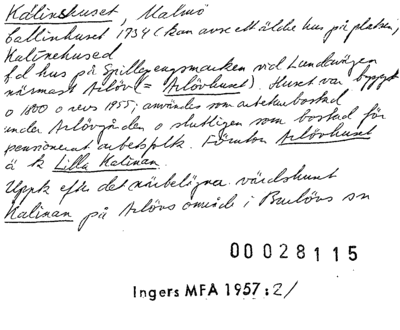 Kalinshuset, Malmö
Callinhuset 1734 (kan avse ett äldre hus på platsen)
Kalinehused
f d hus på Spillepengsmarken vid Lundavägen
närmast Arlöv (= Arlövhuset). Huset var byggt
o 1800 o revs 1955; användes som arbetarbostad
under Arlövgården o slutligen som bostad för
pensionerat arbetsfolk. Förutom Arlövhuset
ä k Lilla Kalinan.
Uppk efter det närbelägna värdshuset
Kalinan på Arlövs område i Burlövs sn
00028115
Ingers MFA 1957:2/